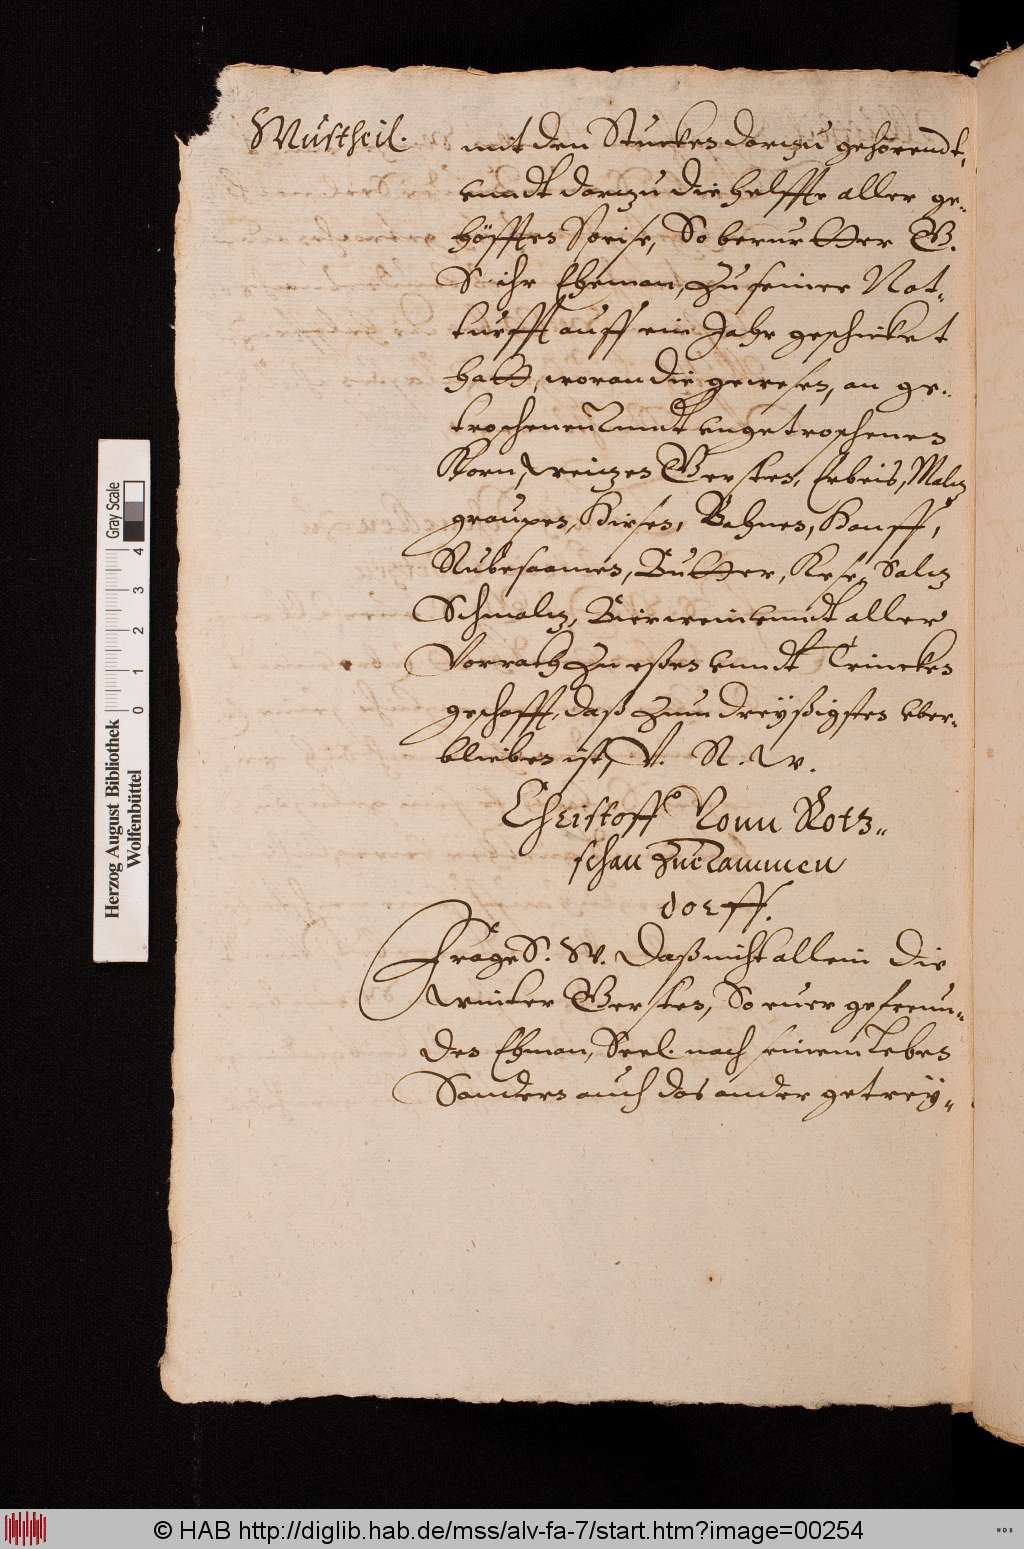 Mustheil.
mit den Stucken darzu gehörendt,
vnndt darzu die helffte aller ge-
höfften Speise, So berurtter G.
S. ihr Eheman, zu seiner Not-
turfft auff ein Jahr geschicket
hatt, woran die gewesen, an ge-
troschenen vnndt vngetroschenen
Korn, weitzen Gersten, Erbeis, Maltz
graupen, Hirsen, Bohnen, Hanff,
Rubesaamen, Butter, Kese, Saltz
Schmaltz, Bier wein vnndt aller
Vorrath zu eßen vnndt Trincken
geschafft, daß zum dreyßigsten vber-
blieben ist, V. R. W.
Christoff Vonn Kotz-
schau zue Tammen
dorff.
Frage S. W. Daß nicht allein die
winter Gersten, So euer gefreun-
den Ehman, Seel. nach seinem Leben
Sondern auch das ander getrey-
Herzog August Bibliothek
Wolfenbüttel
0 1 2 3 4
Gray Scale
© HAB http://diglib.hab.de/mss/alv-fa-7/start.htm?image=00254